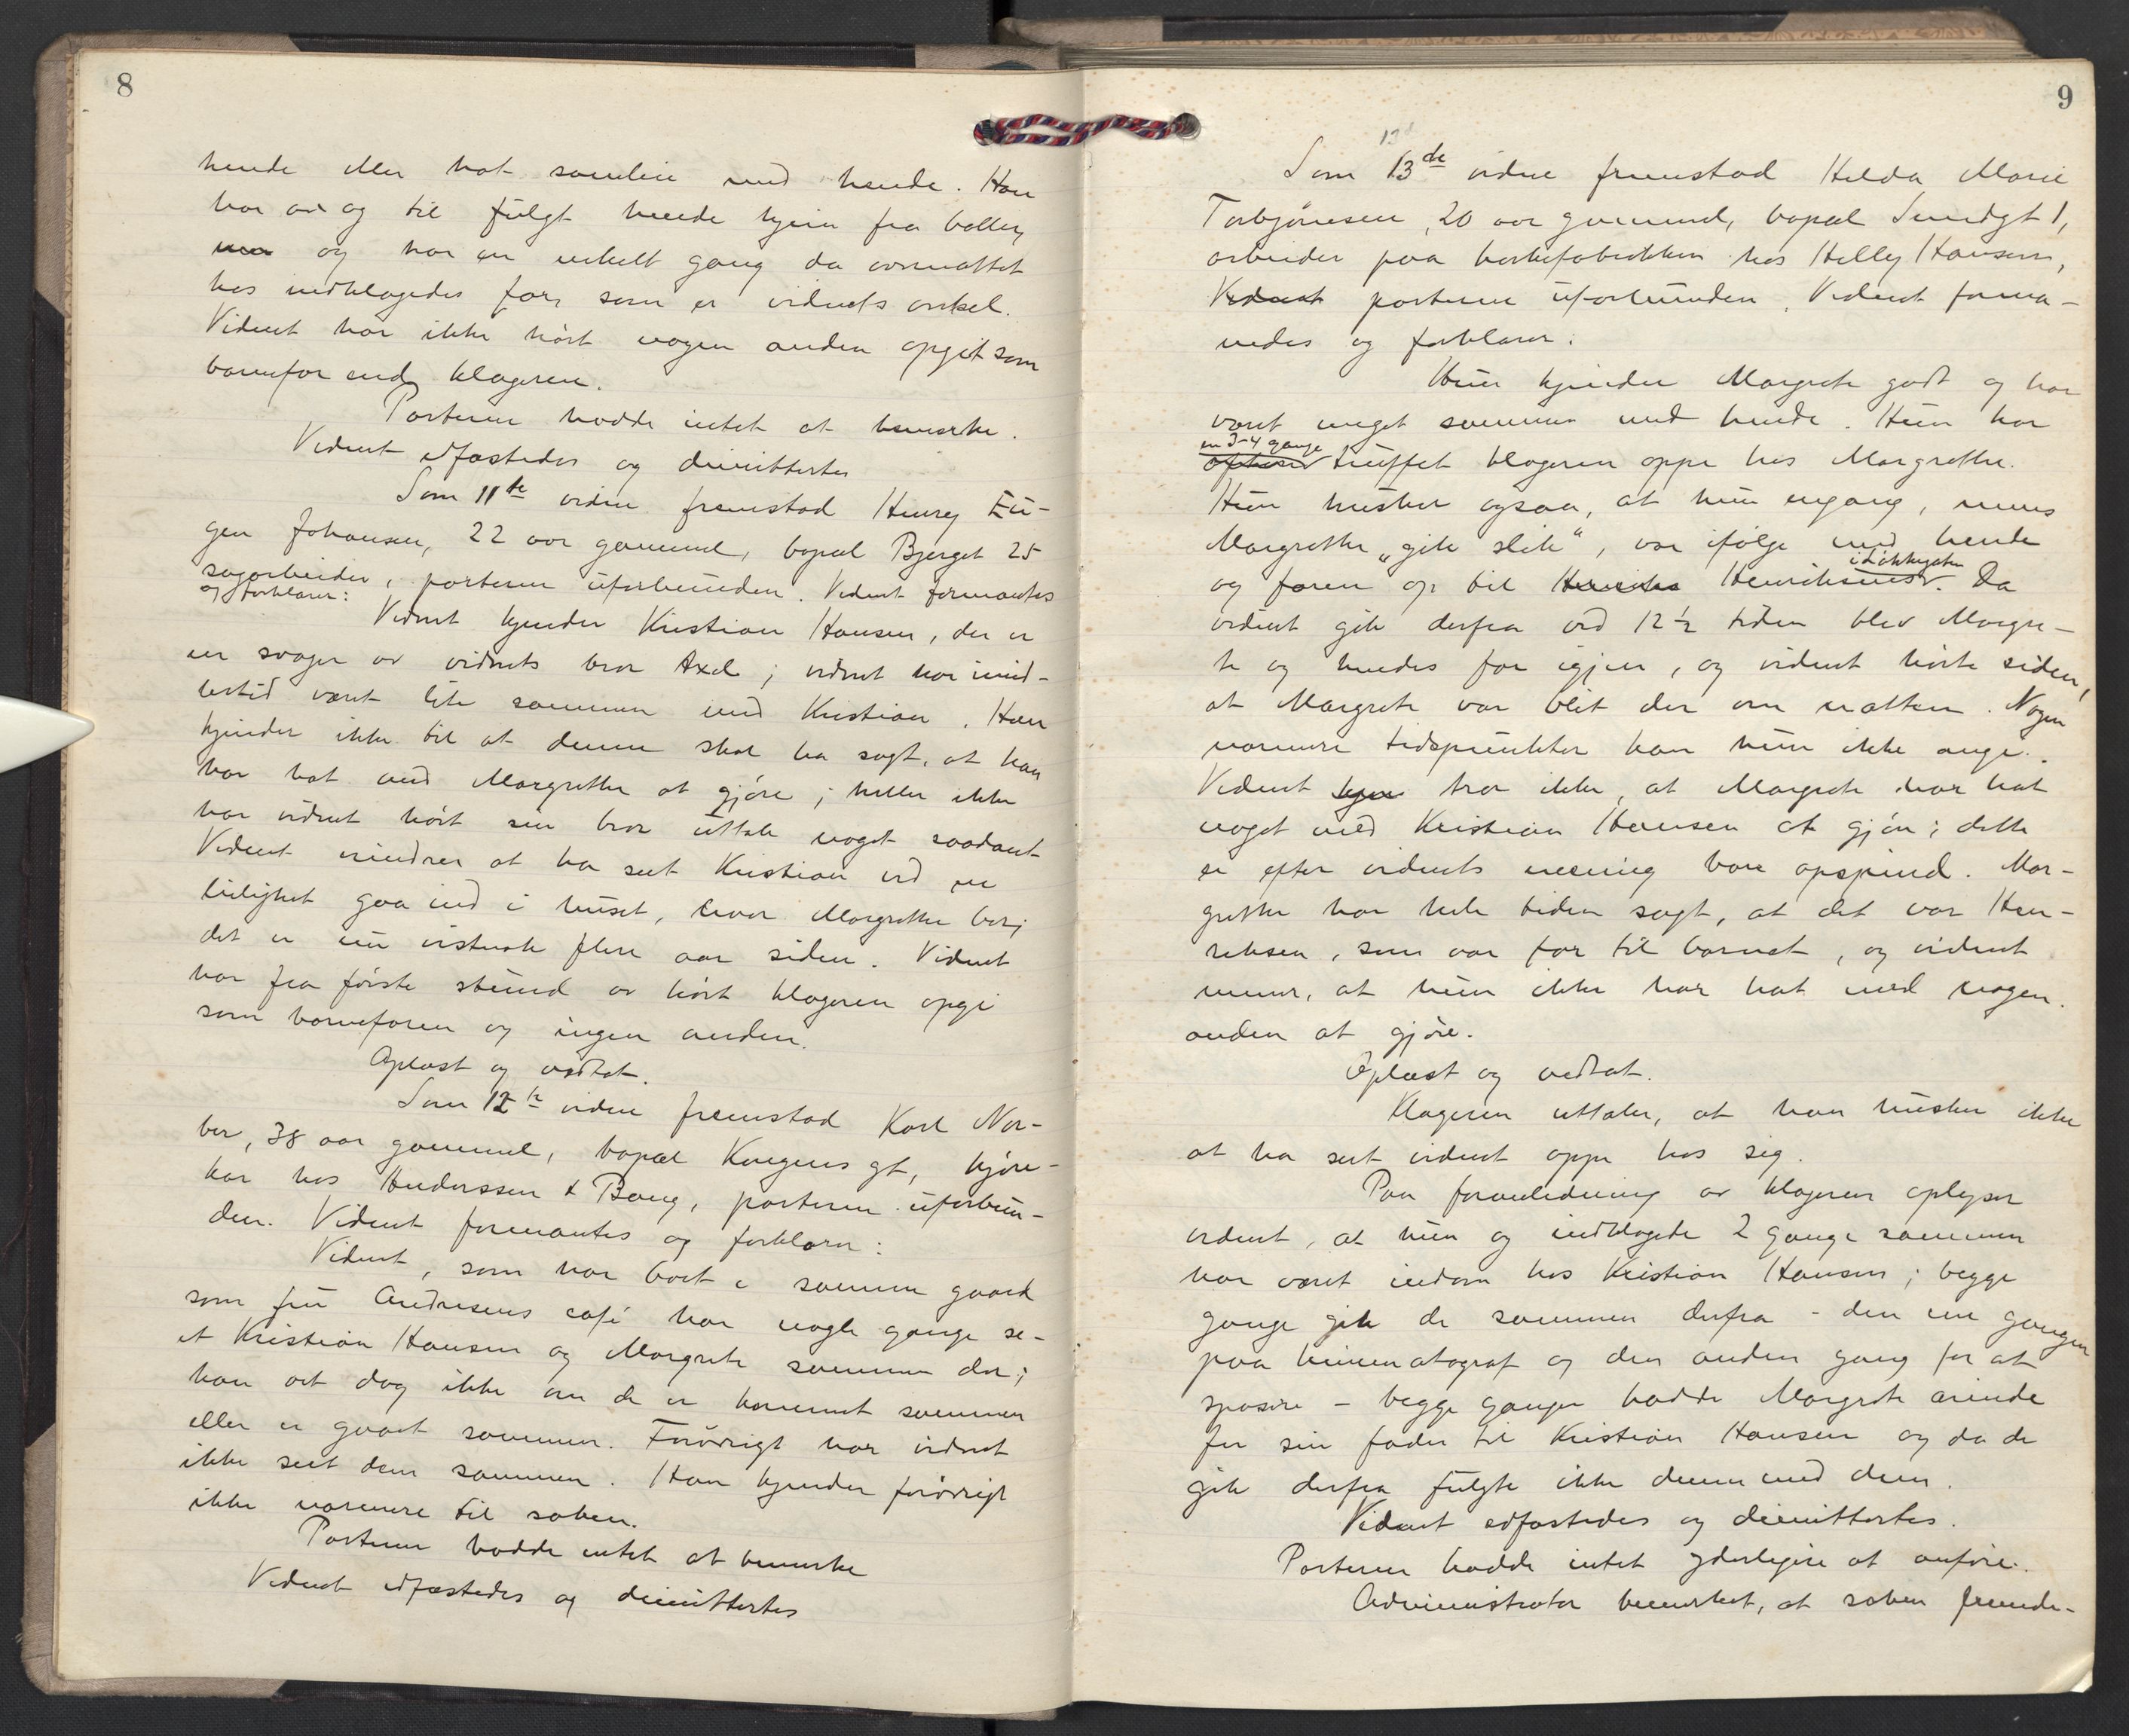 8
hende eller hat samleie med hende. Han
har av og til fulgt hende hjem fra baller
og har en enkelt gang da overnattet
hos indklagedes far, som er vidnets onkel.
Vidnet har ikke hørt nogen anden opgit som
barnefar end klageren.
Parterne hadde intet at bemerke.
Vidnet edfæstedes og dimittertes
Som 11te vidne fremstod Henry Eu-
gen Johansen, 22 aar gammel, bopæl Bjerget 25
sagarbeider, parterne uforbunden. Vidnet formantes
og forklarer:
Vidnet kjender Kristian Hansen, der er
en svoger av vidnets bror Axel; vidnet har imid-
lertid været lite sammen med Kristian. Han
kjender ikke til at denne skal ha sagt, at han
har hat med Margrethe at gjøre; heller ikke
har vidnet hørt sin bror uttale noget saadant
Vidnet erindrer at ha seet Kristian ved en
leilighet gaa ind i huset, hvor Margrethe bor;
det er nu vistnok flere aar siden. Vidnet
har fra første stund av hørt klageren opgi
som barnefaren og ingen anden.
Oplæst og vedtat.
Som 12te vidne fremstod Karl Nor-
ber, 38 aar gammel, bopæl Kongens gt, kjøre-
kar hos Anderssen & Bang, parterne uforbun-
den. Vidnet formantes og forklarer:
Vidnet, som har boet i samme gaard
som fru Andresens café har nogle gange se-
et Kristian Hansen og Margrete sammen der;
han vet dog ikke om de er kommet sammen
eller er gaaet sammen. Forøvrigt har vidnet
ikke seet dem sammen. Han kjender forøvrigt
ikke nærmere til saken.
Parterne hadde intet at bemerke
Vidnet edfæstedes og dimittertes
9
Som 13de vidne fremstod Helda Marie
Torbjørnesen, 20 aar gammel, bopæl Smedgt 1,
arbeider paa hærkefabrikken hos Helly Hansen,
Vidnet parterne uforbunden. Vidnet forma-
nedes og forklarer:
Hun kjender Margrete godt og har
været meget sammen med hende. Hun har
en 3-4 gange
oftere truffet klageren oppe hos Margrethe.
Hun husker ogsaa, at hun engang, mens
Margrethe "gik slik", var ifølge med hende
i Løkkegaten
og faren op til Henriksens. Da
vidnet gik derfra ved 12 1/2 tiden blev Margre-
te og hendes far igjen, og vidnet hørte siden,
at Margrete var blit der om natten. Nogen
nærmere tidspunkter kan hun ikke angi.
Vidnet tror ikke, at Margrete har hat
noget med Kristian Hansen at gjøre; dette
er efter vidnets mening bare opspind. Mar-
grethe har hele tiden sagt, at det var Hen-
riksen, som var far til barnet, og vidnet
mener, at hun ikke har hat med nogen
anden at gjøre.
Oplæst og vedtat.
Klageren uttaler, at han husker ikke
at ha seet vidnet oppe hos sig.
Paa foranledning av klageren oplyser
vidnet, at hun og indklagede 2 gange sammen
har været indom hos Kristian Hansen; begge
gange gik de sammen derfra - den ene gangen
paa kinematograf og den anden gang for at
spasere - begge ganger hadde Margrete ærinde
for sin fader til Kristian Hansen og da de
gik derfra fulgte ikke denne med dem.
Vidnet edfæstedes og dimittertes.
Parterne hadde intet yderligere at anføre.
Administrator bemerket, at saken fremde-